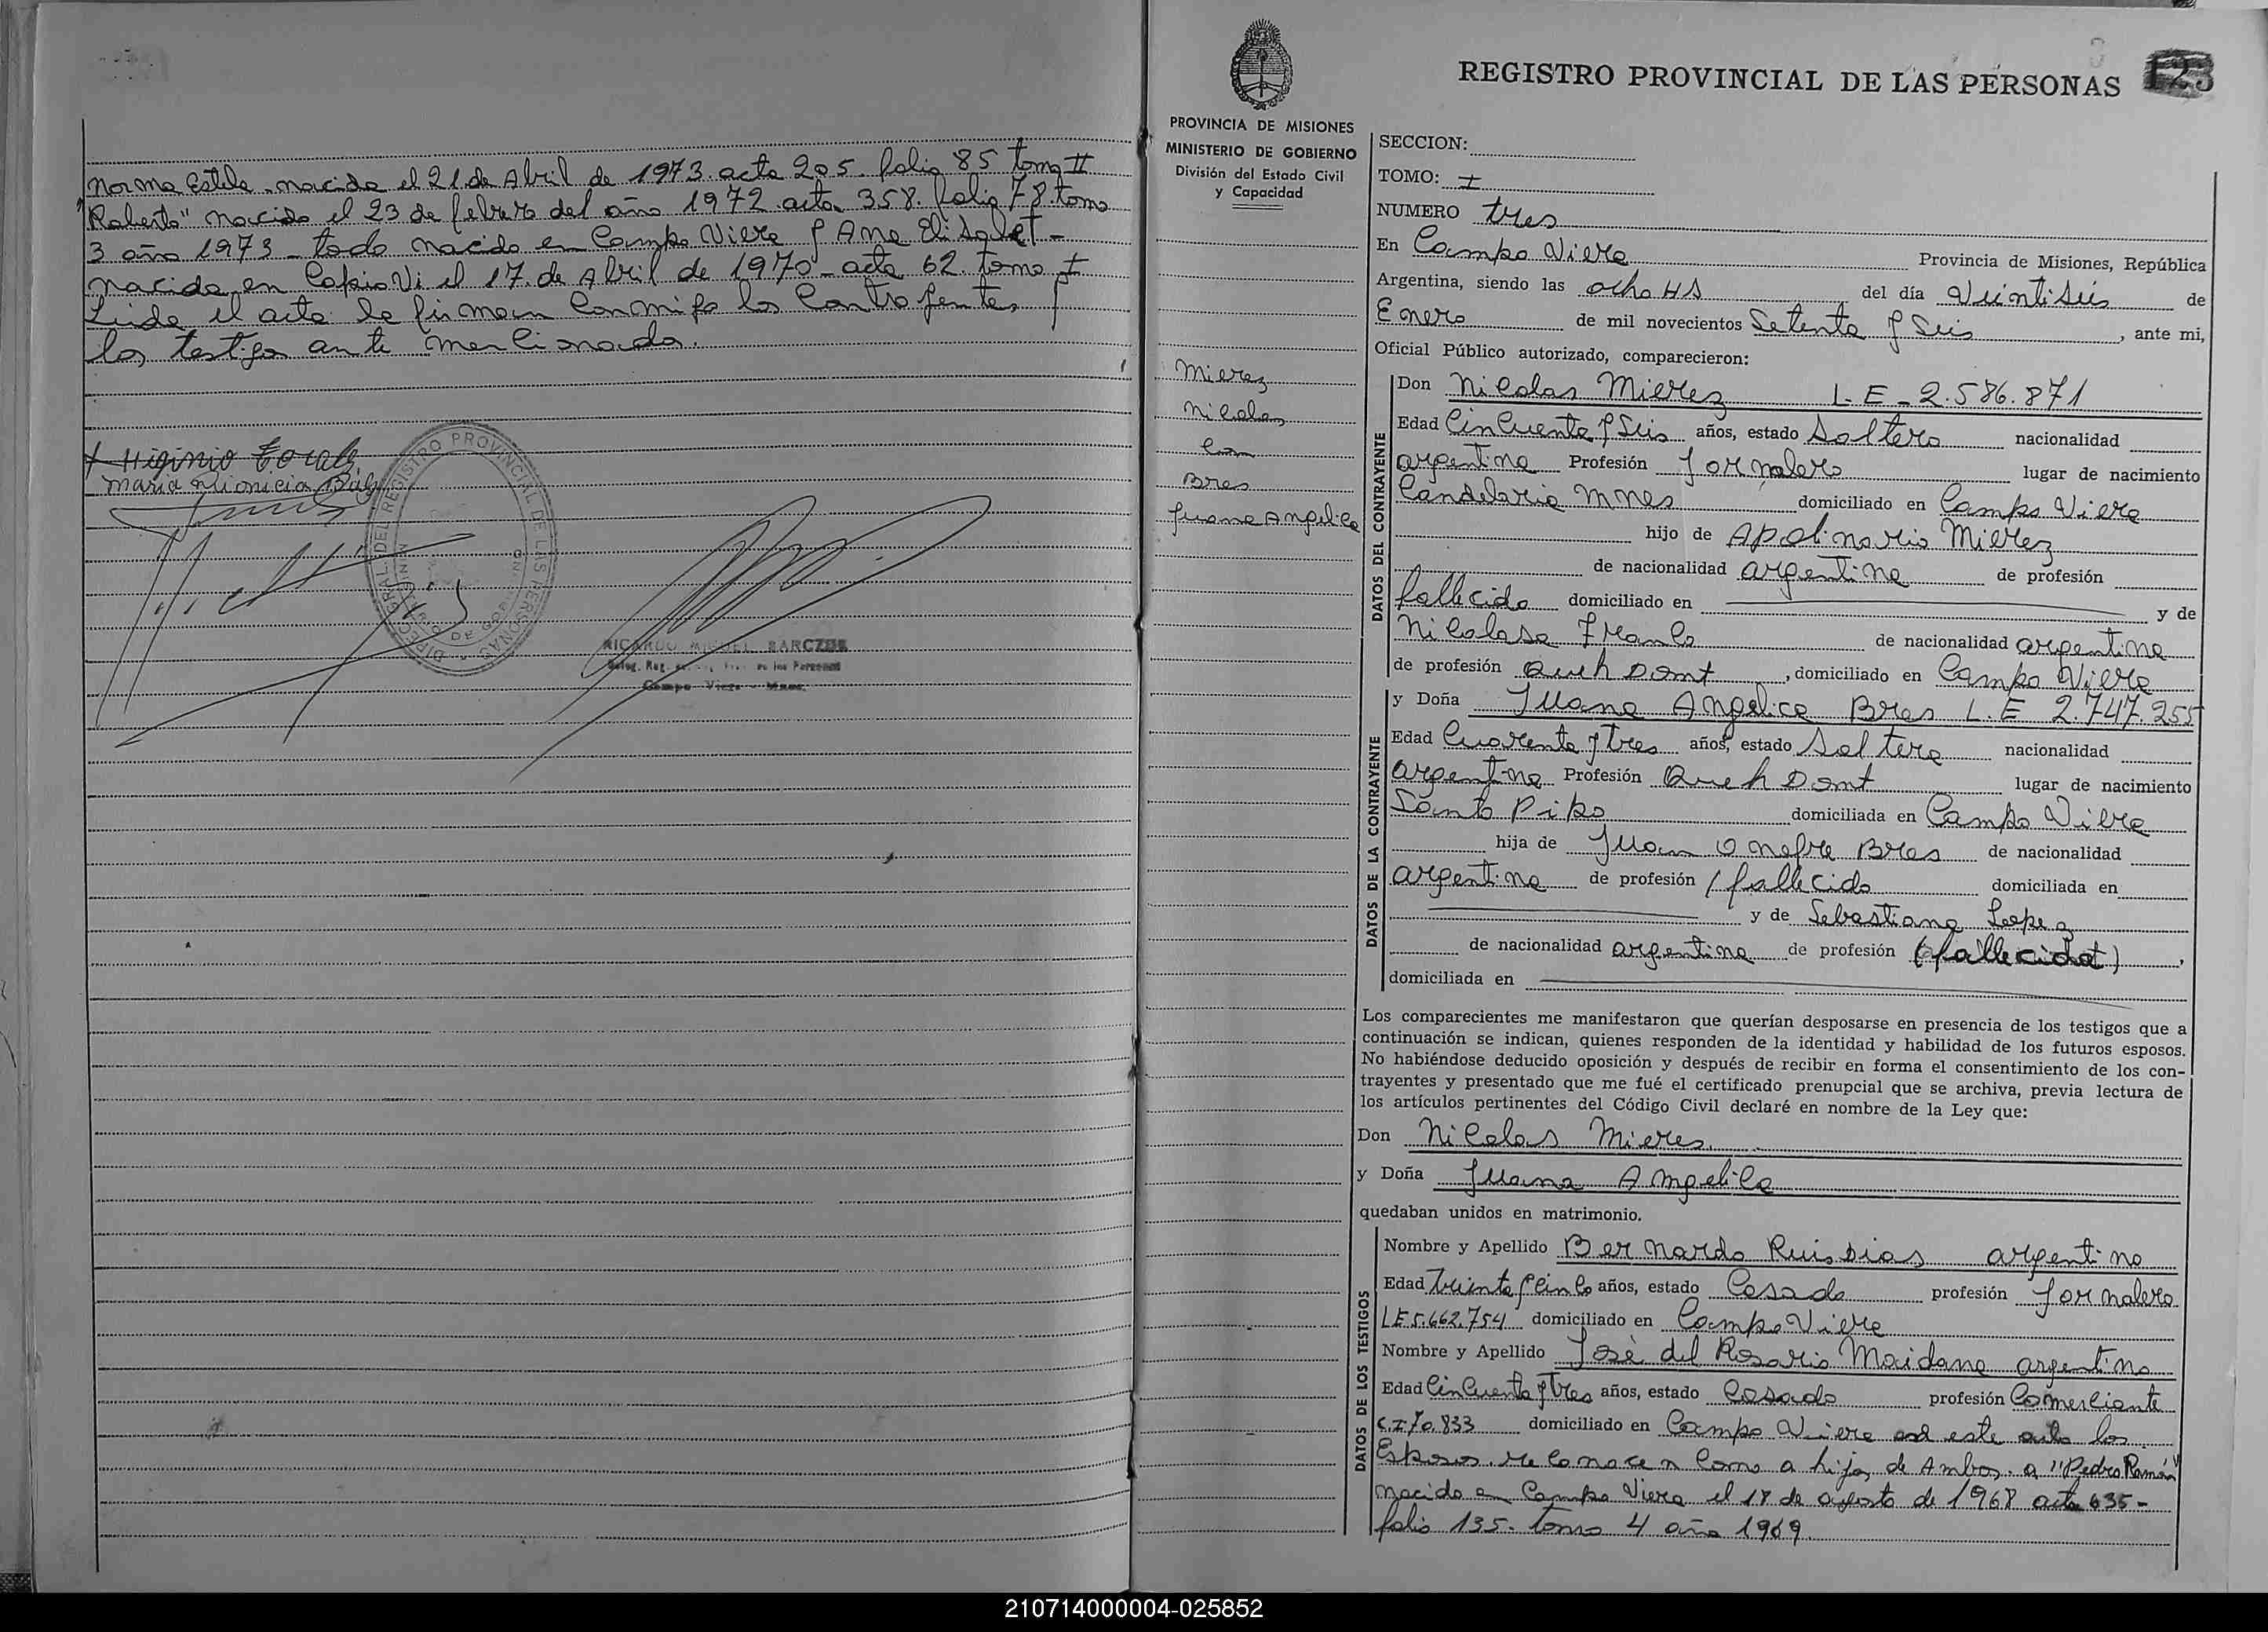 Norma Estela nacida el 21 de Abril de 1973 acta 205. folio 85 tomo II
"Roberto" nacido el 23 de febrero del año 1972 acta 358. folio 78 tomo
3 año 1973 - todo nacido en Campo Viera y Ana Elisabet -
nacida en Capiovi el 17. de Abril de 1970 - acta 62. tomo I
Leida el acta la firman conmigo los Contrayentes y
los testigos ante mencionados.
Higinio
Maria Dionicia
DIREC. GRAL. DEL REGISTRO PROVINCIAL DE LAS PERSONAS
RICARDO MIGUEL BARCZUK
Deleg. Reg. de las Personas
Campo Viera - Mnes.
REGISTRO PROVINCIAL DE LAS PERSONAS 123
PROVINCIA DE MISIONES
MINISTERIO DE GOBIERNO
División del Estado Civil
y Capacidad
Mierez
Nicolas
Con
Bres
Juana Angelica
SECCION:
TOMO: I
NUMERO tres
En Campo Viera Provincia de Misiones, República
Argentina, siendo las ocho HS del día Veintiseis de
Enero de mil novecientos Setenta y Seis, ante mi,
Oficial Público autorizado, comparecieron:
DATOS DEL CONTRAYENTE
Don Nicolas Mierez L.E - 2.586.871
Edad Cincuenta y Seis años, estado Soltero nacionalidad
argentina Profesión Jornalero lugar de nacimiento
Candelaria Mnes domiciliado en Campo Viera
hijo de Apolinario Mierez
de nacionalidad argentina de profesión
fallecido domiciliado en y de
Nicolasa Franco de nacionalidad argentina
de profesión Queh Domt, domiciliado en Campo Viera
DATOS DE LA CONTRAYENTE
y Doña Juana Angelica Bres L.E 2.747.255
Edad Cuarenta y tres años, estado Soltera nacionalidad
argentina Profesión Queh Domt lugar de nacimiento
Santo Pipo domiciliada en Campo Viera
hija de Juan Onofre Bres de nacionalidad
argentina de profesión (fallecido domiciliada en
y de Sebastiana Lopez
de nacionalidad argentina de profesión (fallecida),
domiciliada en
Los comparecientes me manifestaron que querían desposarse en presencia de los testigos que a
continuación se indican, quienes responden de la identidad y habilidad de los futuros esposos.
No habiéndose deducido oposición y después de recibir en forma el consentimiento de los con-
trayentes y presentado que me fué el certificado prenupcial que se archiva, previa lectura de
los artículos pertinentes del Código Civil declaré en nombre de la Ley que:
Don Nicolas Mieres
y Doña Juana Angelica
quedaban unidos en matrimonio.
DATOS DE LOS TESTIGOS
Nombre y Apellido Bernardo Ruisdias argentino
Edad treinta y Cinco años, estado Casado profesión Jornalero
LE 5.662.754 domiciliado en Campo Viera
Nombre y Apellido José del Rosario Maidana argentino
Edad Cincuenta y tres años, estado Casado profesión Comerciante
C.I 70.833 domiciliado en Campo Viera en este acto los
Esposos reconocen como a hijos de Ambos. a "Pedro Ramón"
nacido en Campo Viera el 18 de agosto de 1968 acta 635 -
folio 135. tomo 4 año 1969.
210714000004-025852